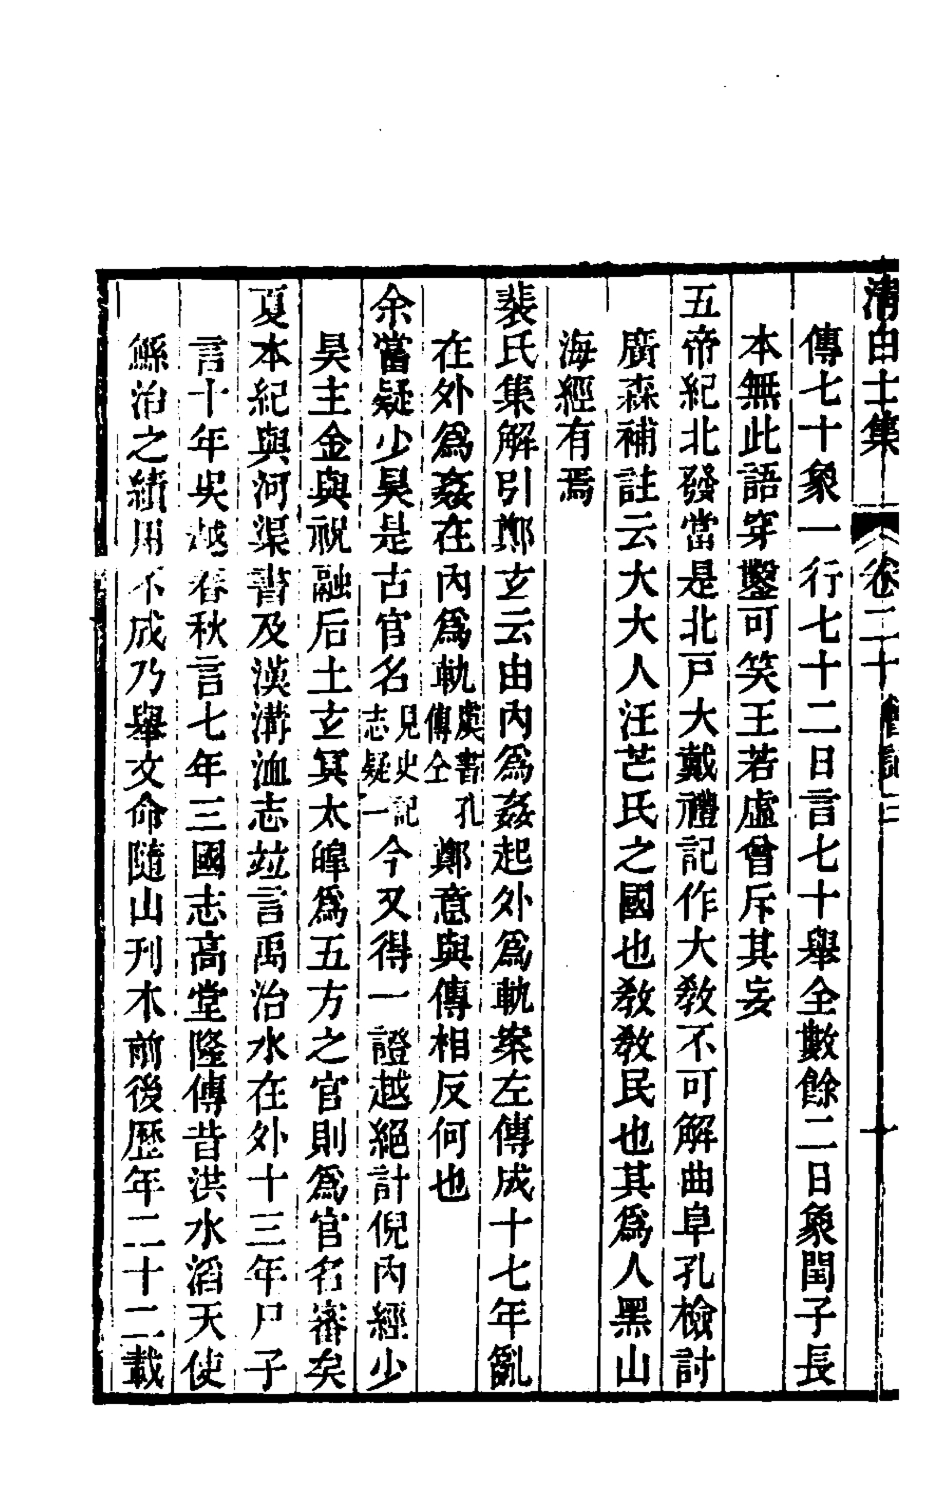 清白士集 卷二十 瞥記二 十
傳七十象一行七十二日言七十舉全數餘二日象閏子長
本無此語穿鑿可笑王若虛曾斥其妄
五帝紀北發當是北戸大戴禮記作大敎不可解曲阜孔檢討
廣森補註云大大人汪芒氏之國也敎敎民也其爲人黑山
海經有焉
裴氏集解引鄭玄云由內爲姦起外爲軌案左傳成十七年亂
在外爲姦在內爲軌虞書孔傳仝鄭意與傳相反何也
余當疑少昊是古官名見史記志疑一今又得一證越絕計倪內經少
昊主金與祝融后土玄冥太皞爲五方之官則爲官名審矣
夏本紀與河渠書及漢溝洫志竝言禹治水在外十三年尸子
言十年吳越春秋言七年三國志高堂隆傳昔洪水滔天使
鯀治之績用不成乃舉文命隨山刊木前後歷年二十二載